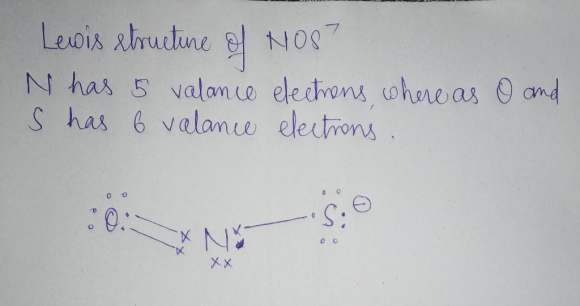 Lewis structure of NOS⁻
N has 5 valance electrons, whereas O and
S has 6 valance electrons.
:O: N: S: ⊖